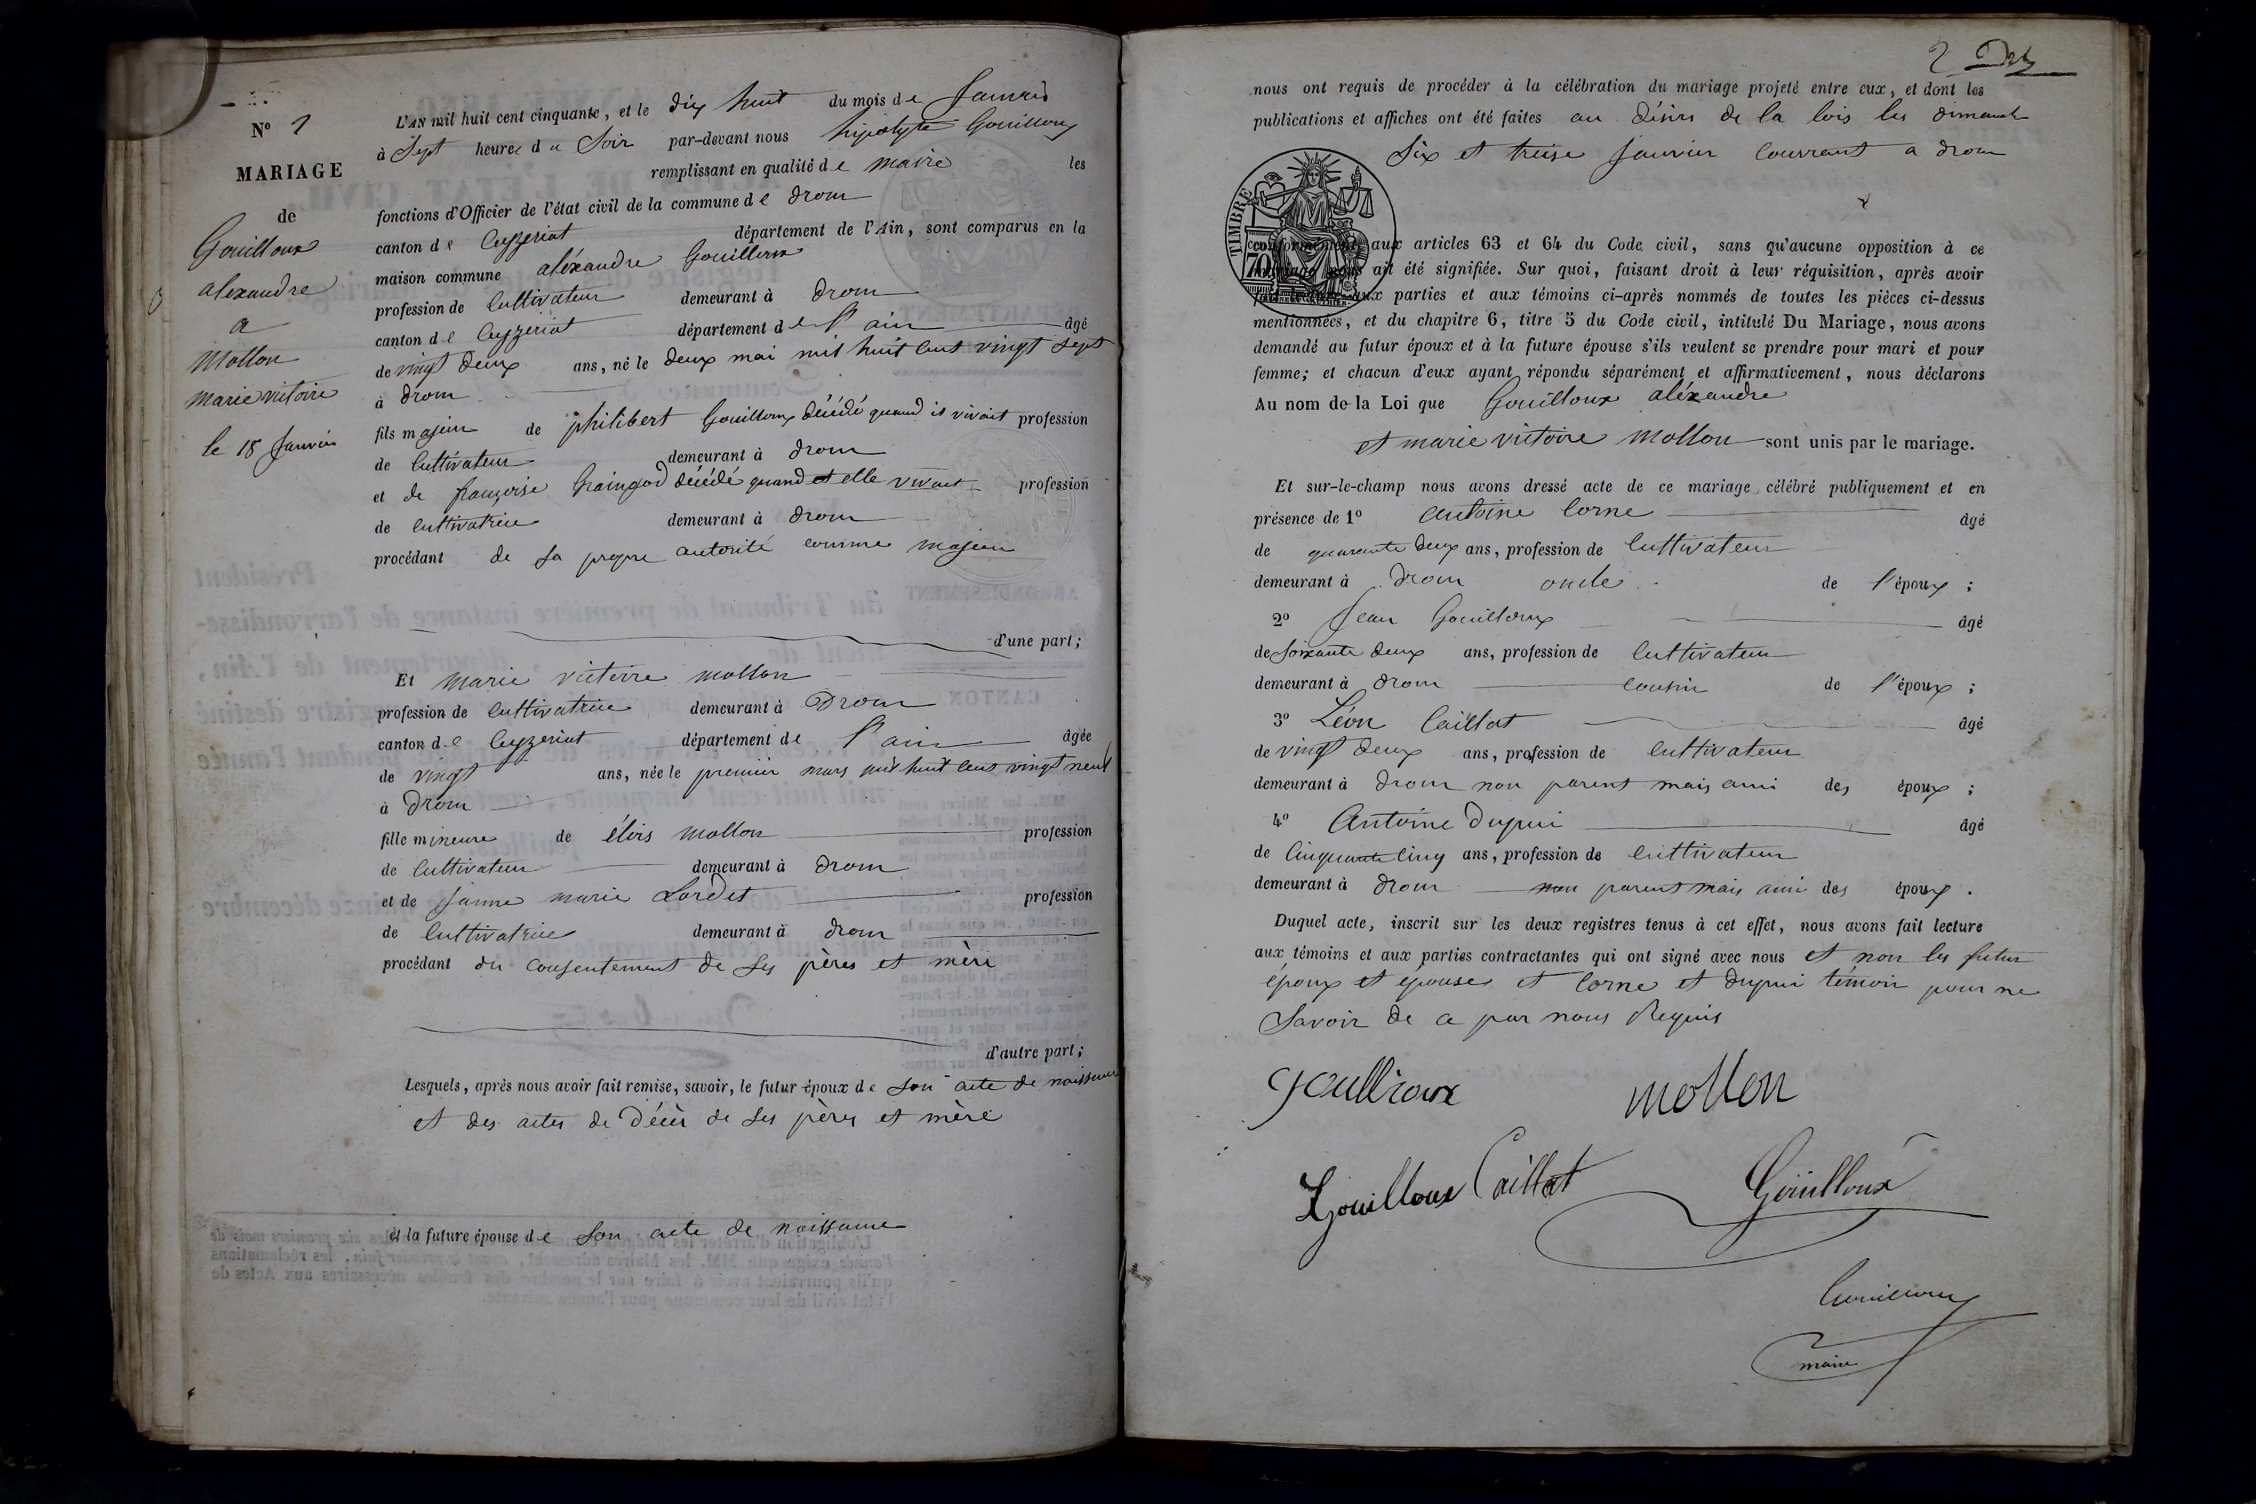 N° 1
MARIAGE
de
Gouilloux
alexandre
a
Mollon
marie victoire
le 18 Janvier
L'AN mil huit cent cinquante, et le dix huit du mois de Janvier
à Sept heures du Soir par-devant nous hipolyte Gouilloux
remplissant en qualité de maire les
fonctions d'Officier de l'état civil de la commune de drom
canton de Ceyzeriat département de l'Ain, sont comparus en la
maison commune aléxandre Gouilloux
profession de Cultivateur demeurant à Drom
canton de Ceyzeriat département de l'ain âgé
de vingt deux ans, né le deux mai mil huit cent vingt sept
à drom
fils majeur de philibert Gouilloux décédé quand il vivait profession
de Cultivateur demeurant à drom
et de françoise décédé quand et elle vivait profession
de cultivatrice demeurant à drom
procédant de sa propre autorité comme majeur
d'une part;
Et marie victoire mollon
profession de cultivatrice demeurant à Drom
canton de Ceyzeriat département de l'ain âgée
de vingt ans, née le premier mars mil huit cent vingt neuf
à Drom
fille mineure de élois mollon profession
de Cultivateur demeurant à drom
et de Janne marie Lordet profession
de Cultivatrice demeurant à drom
procédant du consentement de ses pères et mère
d'autre part;
Lesquels, après nous avoir fait remise, savoir, le futur époux de son acte de naissance
et des actes de Décès de ses pères et mère
et la future épouse de son acte de naissance
2
nous ont requis de procéder à la célébration du mariage projeté entre eux, et dont les
publications et affiches ont été faites au désirs de la lois les dimanche
Six et treise Janvier Courrant a drom
TIMBRE
70
conformément aux articles 63 et 64 du Code civil, sans qu'aucune opposition à ce
mariage nous ait été signifiée. Sur quoi, faisant droit à leur réquisition, après avoir
fait lecture aux parties et aux témoins ci-après nommés de toutes les pièces ci-dessus
mentionnées, et du chapitre 6, titre 5 du Code civil, intitulé Du Mariage, nous avons
demandé au futur époux et à la future épouse s'ils veulent se prendre pour mari et pour
femme; et chacun d'eux ayant répondu séparément et affirmativement, nous déclarons
Au nom de la Loi que Gouilloux aléxandre
et marie victoire Mollon sont unis par le mariage.
Et sur-le-champ nous avons dressé acte de ce mariage célébré publiquement et en
présence de 1° Antoine Corne âgé
de quarante deux ans, profession de Cultivateur
demeurant à Drom oncle de l'époux;
2° Jean Gouilloux âgé
de soixante deux ans, profession de Cultivateur
demeurant à drom cousin de l'époux;
3° Léon Caillat âgé
de vingt deux ans, profession de Cultivateur
demeurant à drom non parent mais ami des époux;
4° Antoine Dupui âgé
de Cinquante Cinq ans, profession de Cultivateur
demeurant à drom non parent mais ami des époux.
Duquel acte, inscrit sur les deux registres tenus à cet effet, nous avons fait lecture
aux témoins et aux parties contractantes qui ont signé avec nous et non les futur
époux et épouses et Corne et dupui témoin pour ne
Savoir de ce par nous Requis
gouilloux mollon
Gouilloux Caillat Gouilloux
Gouilloux
maire